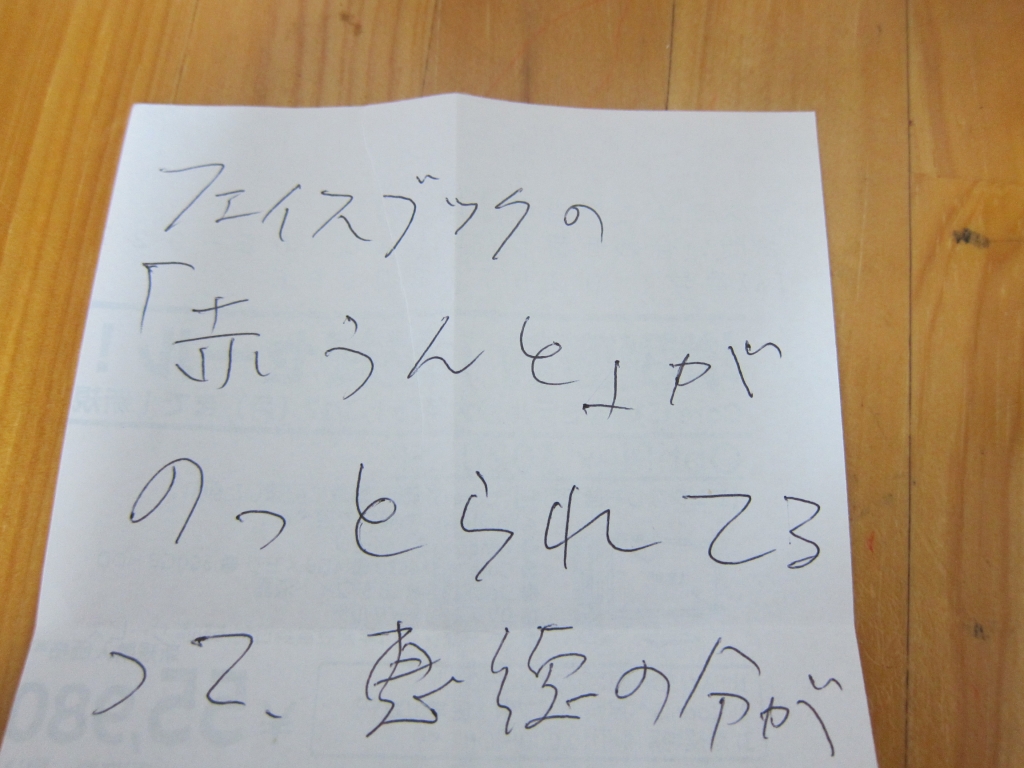 フェイスブックの
「赤うんと」が
のっとられてる
って、恵 の分が